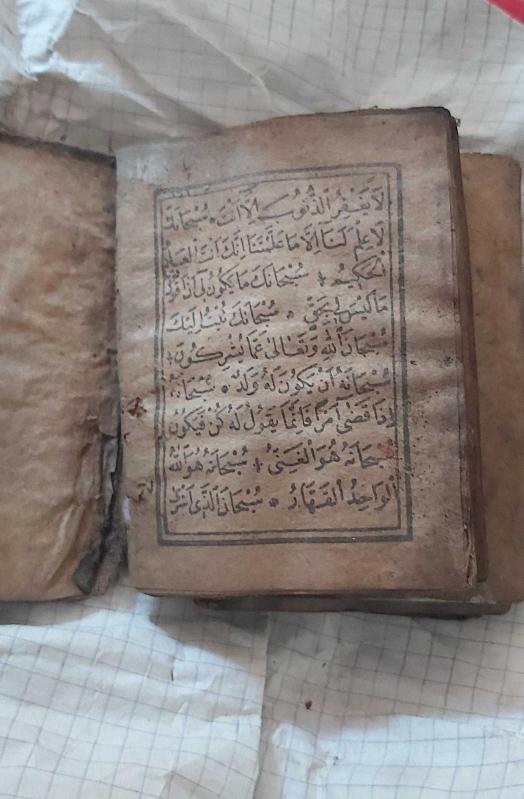 لَا يَغْفِرُ الذُّنُوبَ إِلَّا أَنْتَ * سُبْحَانَكَ
لَا عِلْمَ لَنَا إِلَّا مَا عَلَّمْتَنَا إِنَّكَ أَنْتَ الْعَلِيمُ
الْحَكِيمُ * سُبْحَانَكَ مَا يَكُونُ لِي أَنْ أَقُولَ
مَا لَيْسَ لِي بِحَقٍّ * سُبْحَانَكَ تُبْتُ إِلَيْكَ
سُبْحَانَ اللهِ وَتَعَالَىٰ عَمَّا يُشْرِكُونَ *
سُبْحَانَهُ أَنْ يَكُونَ لَهُ وَلَدٌ * سُبْحَانَهُ
إِذَا قَضَىٰ أَمْرًا فَإِنَّمَا يَقُولُ لَهُ كُنْ فَيَكُونُ
سُبْحَانَهُ هُوَ الْغَنِيُّ * سُبْحَانَهُ هُوَ اللهُ
الْوَاحِدُ الْقَهَّارُ * سُبْحَانَ الَّذِي